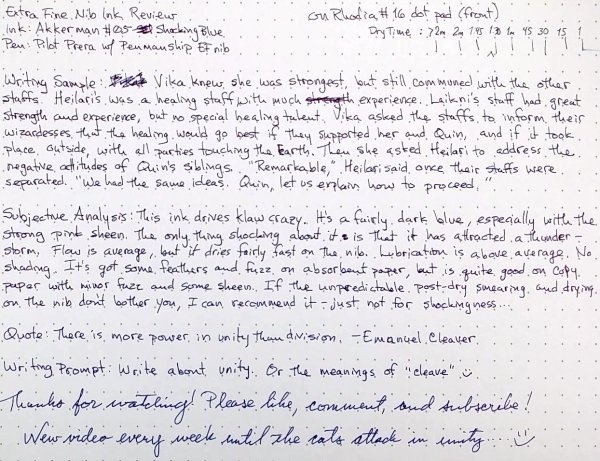 Extra Fine Nib Ink Review
on Rhodia #16 dot pad (front)
Ink: Akkerman #05 Shocking Blue
Dry Time: >2m 2m 1:45 1:30 1m 45 30 15 1
Pen: Pilot Prera w/ Penmanship EF nib
Writing Sample: Vika knew she was strongest, but still communed with the other
staffs. Heilari's was a healing staff with much strength experience. Laikni's staff had great
strength and experience, but no special healing talent. Vika asked the staffs to inform their
wizardesses that the healing would go best if they supported her and Quin, and if it took
place outside, with all parties touching the Earth. Then she asked Heilari to address the
negative attitudes of Quin's siblings. "Remarkable," Heilari said once their staffs were
separated. "We had the same ideas. Quin, let us explain how to proceed."
Subjective Analysis: This ink drives klaw crazy. It's a fairly dark blue, especially with the
strong pink sheen. The only thing shocking about it is that it has attracted a thunder-
storm. Flow is average, but it dries fairly fast on the nib. Lubrication is above average. No
shading. It's got some feathers and fuzz on absorbent paper, but is quite good on copy
paper with minor fuzz and some sheen. If the unpredictable post-dry smearing and drying
on the nib don't bother you, I can recommend it - just not for shockingness...
Quote: There is more power in unity than division. -Emanuel Cleaver
Writing Prompt: Write about unity. Or the meanings of "cleave"
Thanks for watching! Please like, comment, and subscribe!
New video every week until the cats attack in unity...